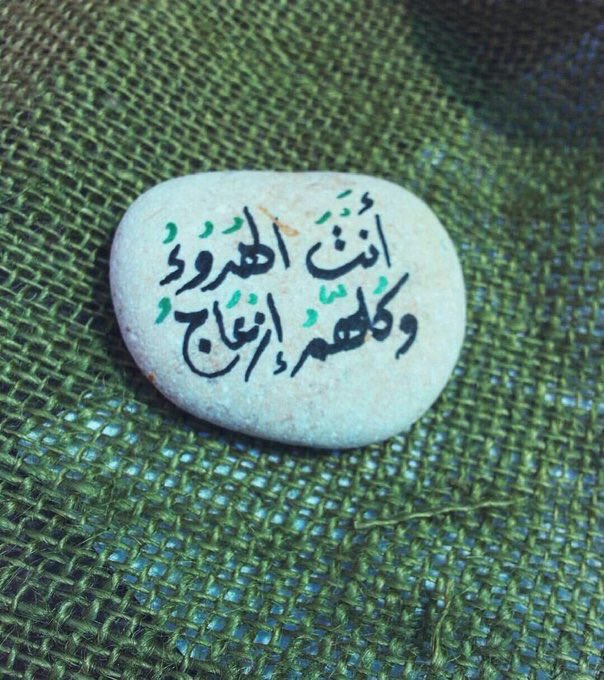 أنتَ الهُدُوءُ
وكُلهّمُ إزعَاجُ